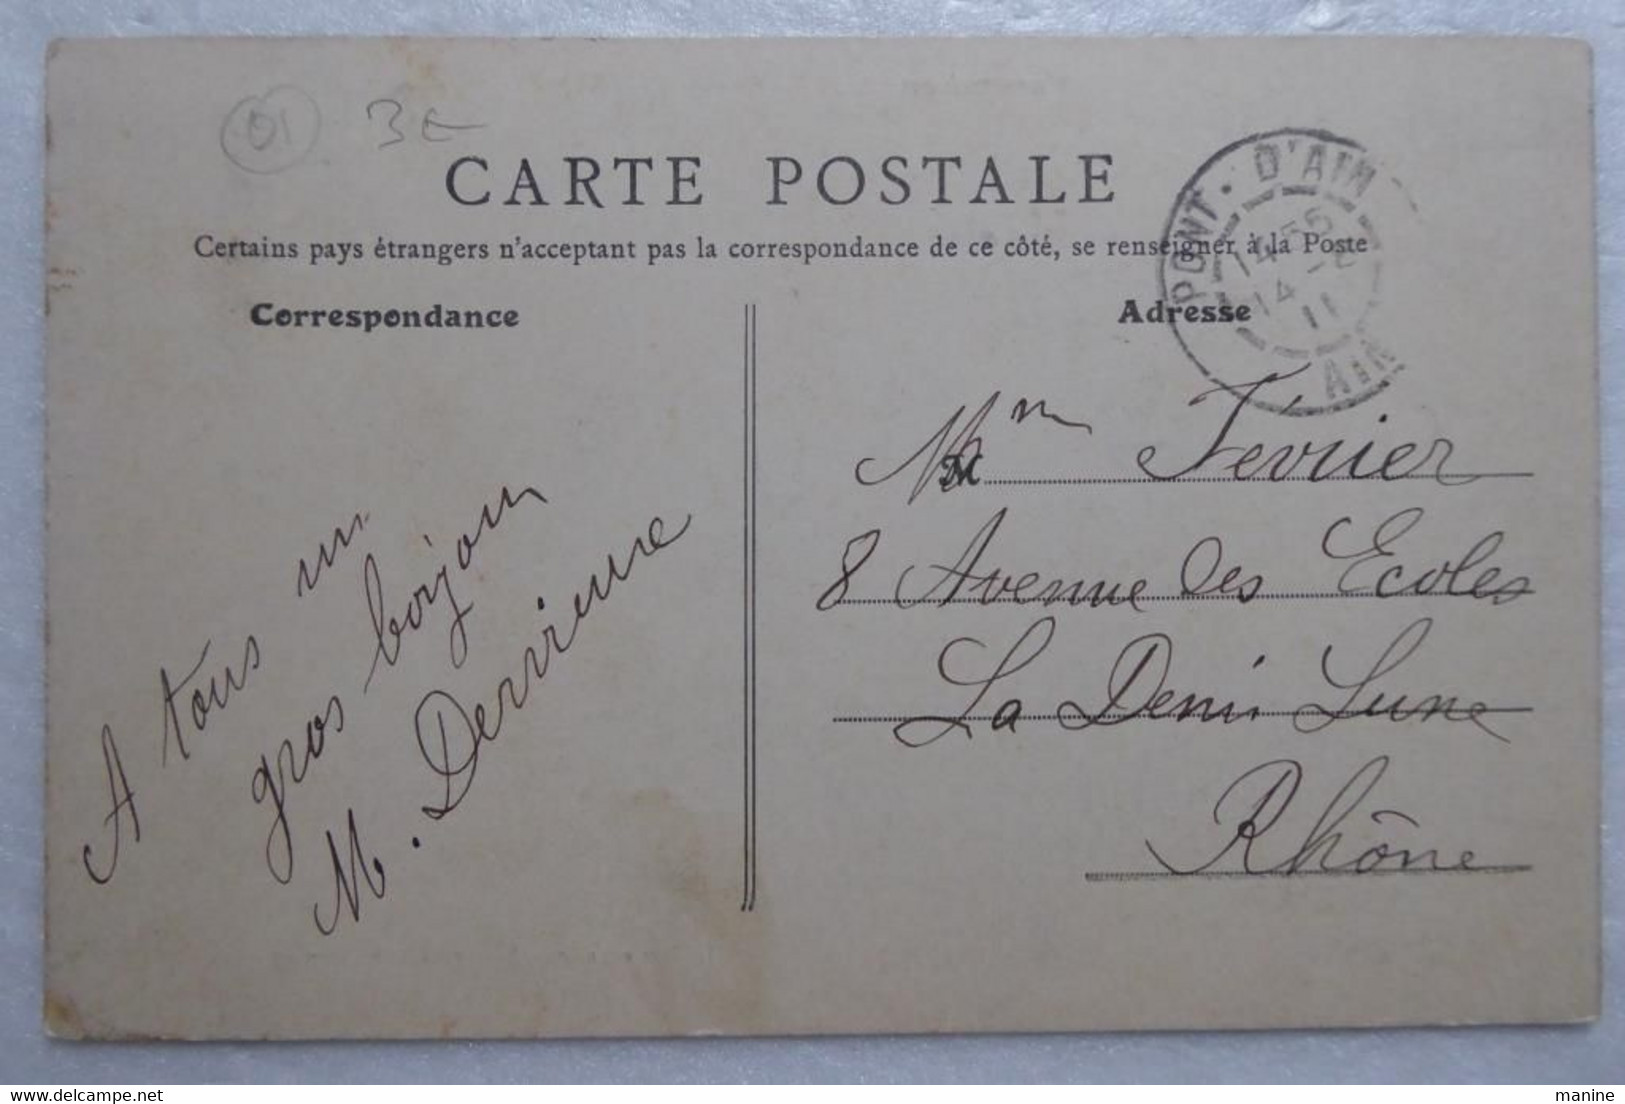 01 3€
CARTE POSTALE
Certains pays étrangers n'acceptant pas la correspondance de ce côté, se renseigner à la Poste
Correspondance
A tous un
gros bonjour
M. Dervieure
PONT-D'AIN
14
11
AIN
Adresse
M
Mm Fevrier
8 Avenue des Ecoles
La Demi Lune
Rhône
manine